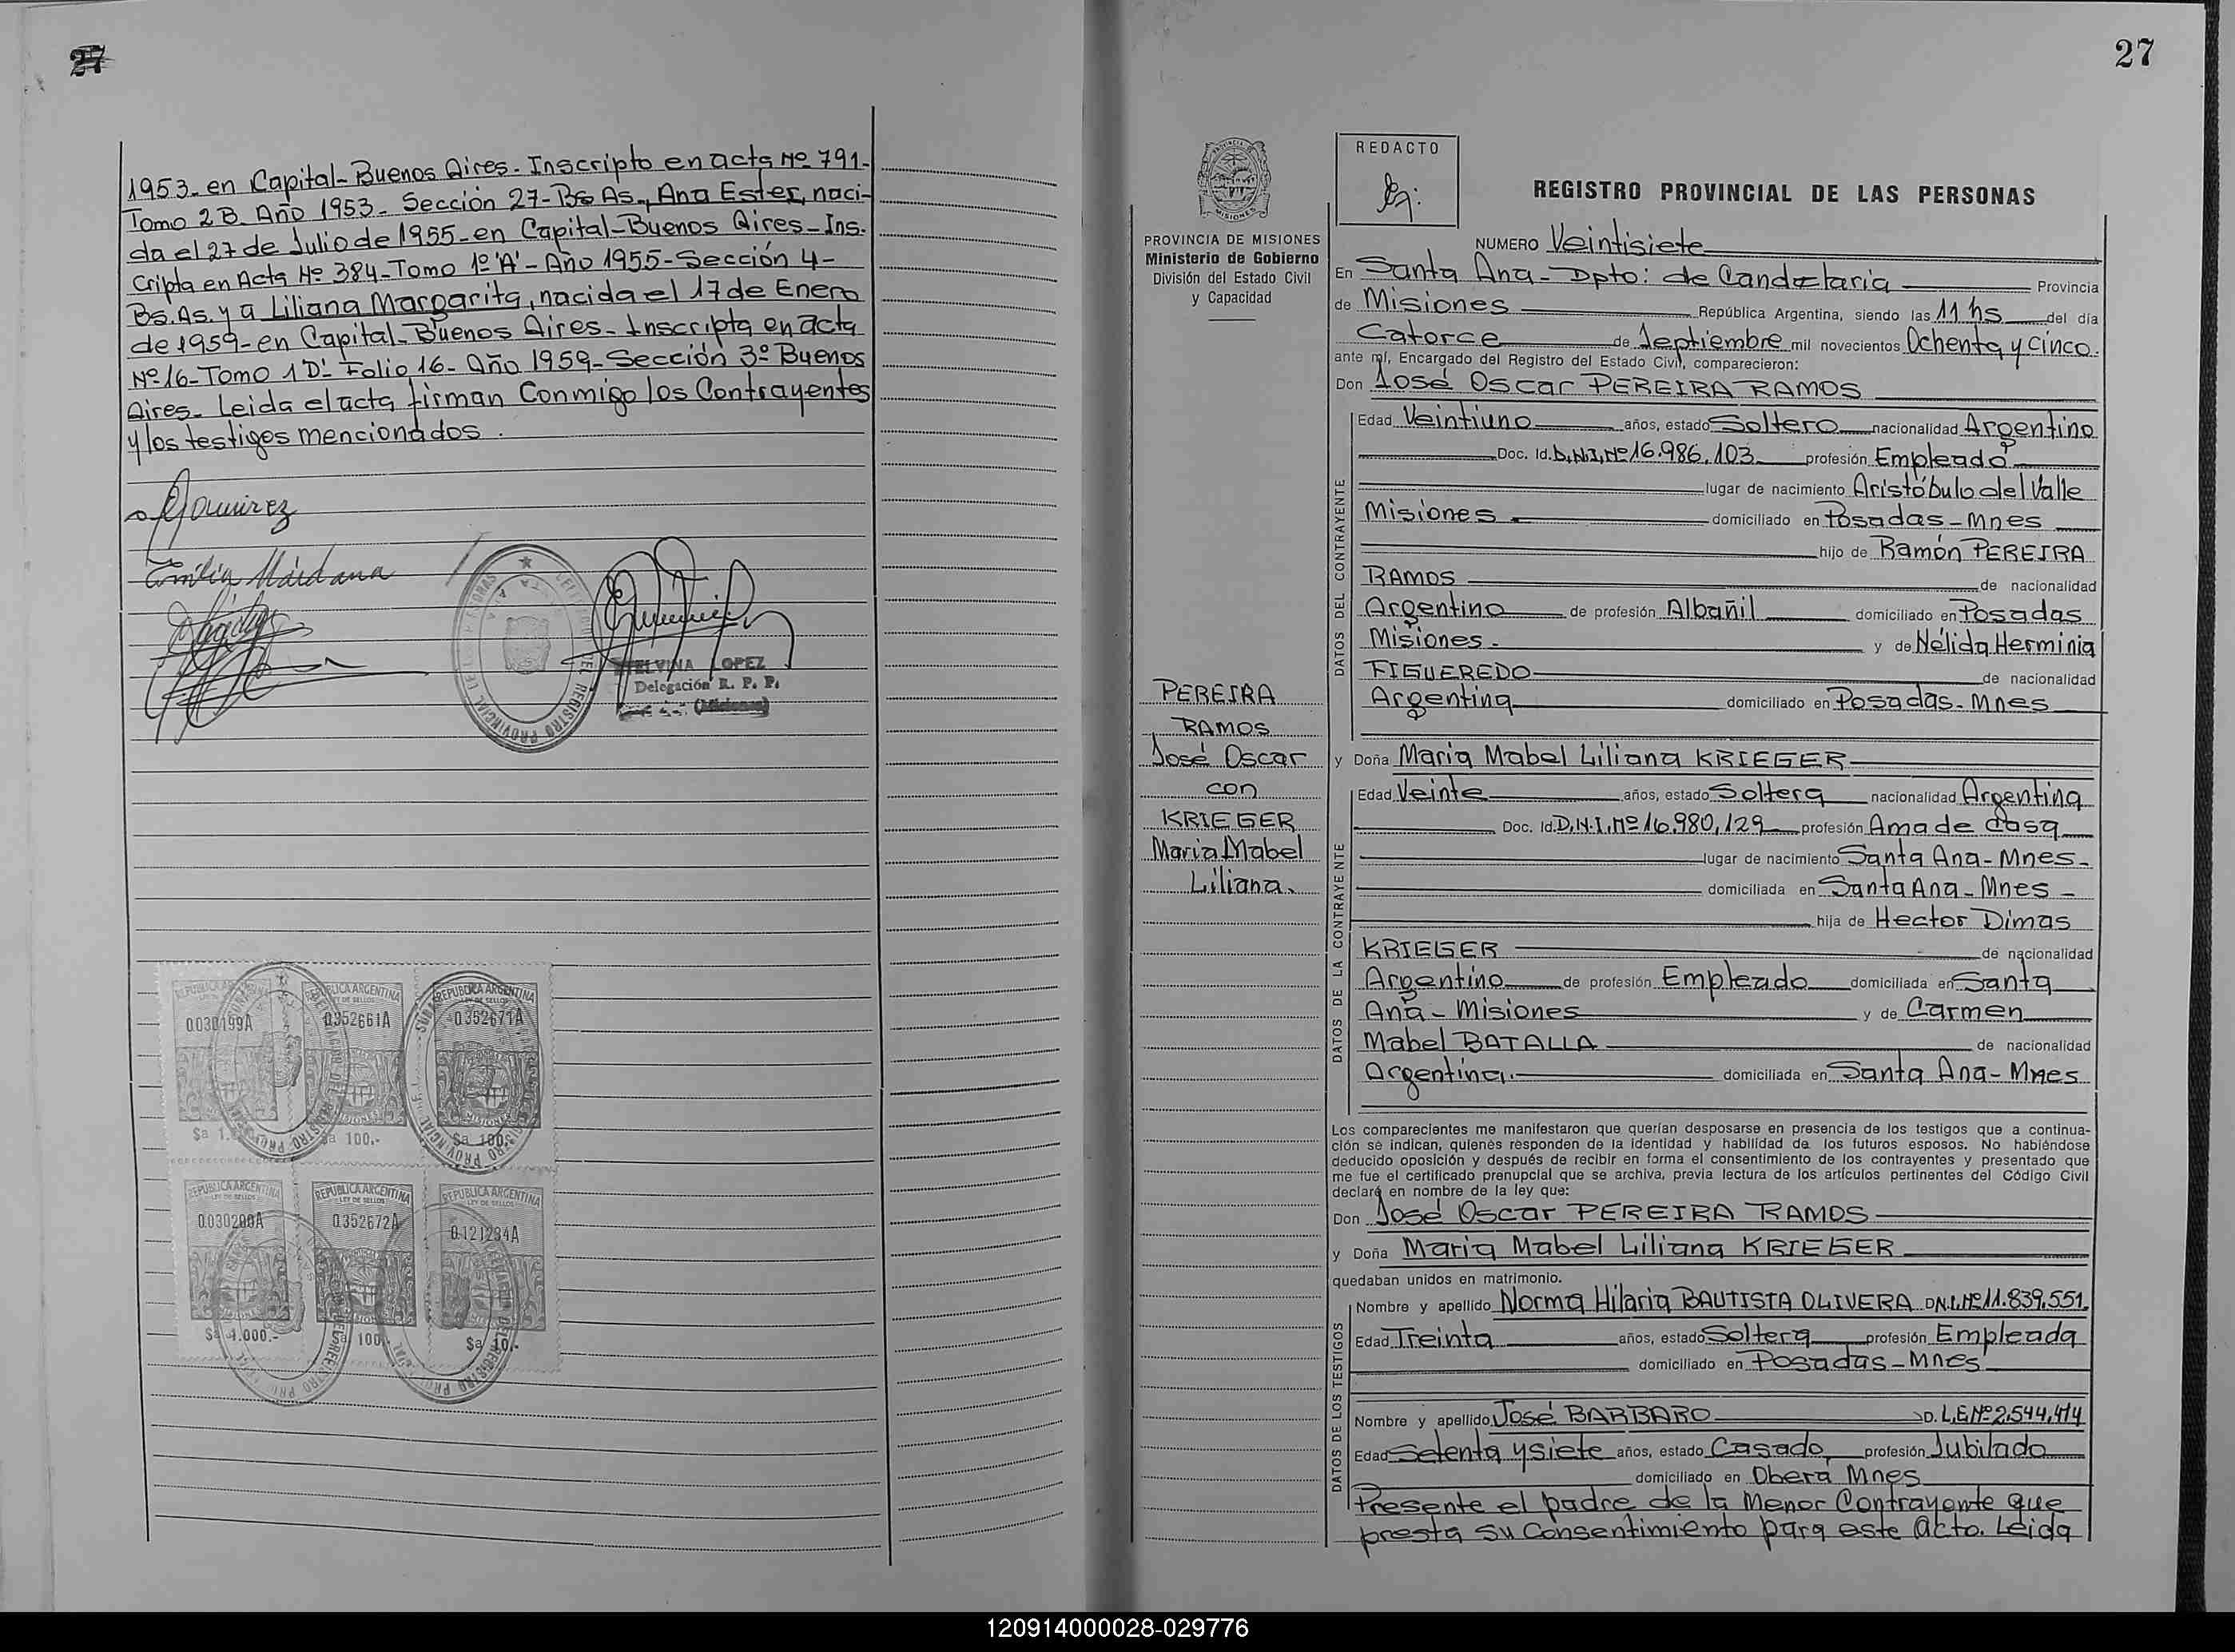 27
1953- en Capital- Buenos Aires- Inscripto en acta Nº 791-
Tomo 2B. Año 1953- Sección 27- Bs As., Ana Ester, naci-
da el 27 de Julio de 1955- en Capital- Buenos Aires- Ins-
cripta en Acta Nº 384- Tomo 1º 'A'- Año 1955- Sección 4-
Bs. As. y a Liliana Margarita, nacida el 17 de Enero
de 1959- en Capital- Buenos Aires- Inscripta en acta
Nº 16- Tomo 1 D'- Folio 16- Año 1959- Sección 3º Buenos
Aires- Leida el acta firman Conmigo los Contrayentes
y los testigos mencionados.
Emilia Maidana
ELVINA LOPEZ
Delegación R. P. P.
(Misiones)
REPUBLICA ARGENTINA
LEY DE SELLOS
0.030199A
REPUBLICA ARGENTINA
LEY DE SELLOS
0.352661A
$a 100.-
REPUBLICA ARGENTINA
LEY DE SELLOS
0.352671A
$a 100.-
REPUBLICA ARGENTINA
LEY DE SELLOS
0.030200A
$a 1.000.-
REPUBLICA ARGENTINA
LEY DE SELLOS
0.352672A
$a 100.-
REPUBLICA ARGENTINA
LEY DE SELLOS
0.121234A
$a 10.-
27
PROVINCIA DE MISIONES
Ministerio de Gobierno
División del Estado Civil
y Capacidad
PEREIRA
RAMOS
José Oscar
con
KRIEGER
Maria Mabel
Liliana.
REDACTO
REGISTRO PROVINCIAL DE LAS PERSONAS
NUMERO Veintisiete
En Santa Ana- Dpto: de Candelaria Provincia
de Misiones República Argentina, siendo las 11 hs del día
Catorce de Septiembre mil novecientos Ochenta y cinco.
ante mí, Encargado del Registro del Estado Civil, comparecieron:
Don José Oscar PEREIRA RAMOS
DATOS DEL CONTRAYENTE
Edad Veintiuno años, estado Soltero nacionalidad Argentino
Doc. Id. D.N.I. Nº 16.986.103 profesión Empleado
lugar de nacimiento Aristóbulo del Valle
Misiones domiciliado en Posadas-Mnes
hijo de Ramón PEREIRA
RAMOS de nacionalidad
Argentino de profesión Albañil domiciliado en Posadas
Misiones- y de Nélida Herminia
FIGUEREDO de nacionalidad
Argentina domiciliado en Posadas-Mnes
y Doña Maria Mabel Liliana KRIEGER
DATOS DE LA CONTRAYENTE
Edad Veinte años, estado Soltera nacionalidad Argentina
Doc. Id. D.N.I. Nº 16.980.129 profesión Ama de casa
lugar de nacimiento Santa Ana- Mnes-
domiciliada en Santa Ana- Mnes-
hija de Hector Dimas
KRIEGER de nacionalidad
Argentino de profesión Empleado domiciliada en Santa
Ana- Misiones y de Carmen
Mabel BATALLA de nacionalidad
Argentina. domiciliada en Santa Ana- Mnes
Los comparecientes me manifestaron que querían desposarse en presencia de los testigos que a continua-
ción se indican, quienes responden de la identidad y habilidad de los futuros esposos. No habiéndose
deducido oposición y después de recibir en forma el consentimiento de los contrayentes y presentado que
me fue el certificado prenupcial que se archiva, previa lectura de los artículos pertinentes del Código Civil
declaré en nombre de la ley que:
Don José Oscar PEREIRA RAMOS
y Doña Maria Mabel Liliana KRIEGER
quedaban unidos en matrimonio.
DATOS DE LOS TESTIGOS
Nombre y apellido Norma Hilaria BAUTISTA OLIVERA DN.I.Nº 11.839.551.
Edad Treinta años, estado Soltera profesión Empleada
domiciliado en Posadas-Mnes
Nombre y apellido José BARBARO D. L.E.Nº 2.544.414
Edad Setenta y siete años, estado Casado profesión Jubilado
domiciliado en Oberá Mnes
Presente el padre de la Menor Contrayente que
presta su Consentimiento para este Acto. Leida
120914000028-029776